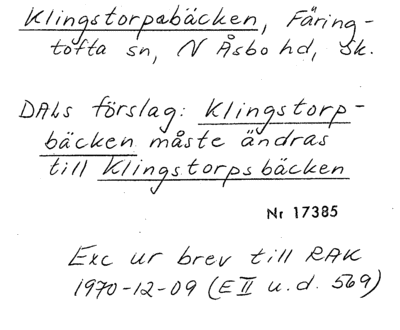 Klingstorpabäcken, Färing-
tofta sn, N Åsbo hd, Sk.
DALs förslag: Klingstorp-
bäcken måste ändras
till Klingstorpsbäcken
Nr 17385
Exc ur brev till RAK
1970-12-09 (E II u.d. 569)